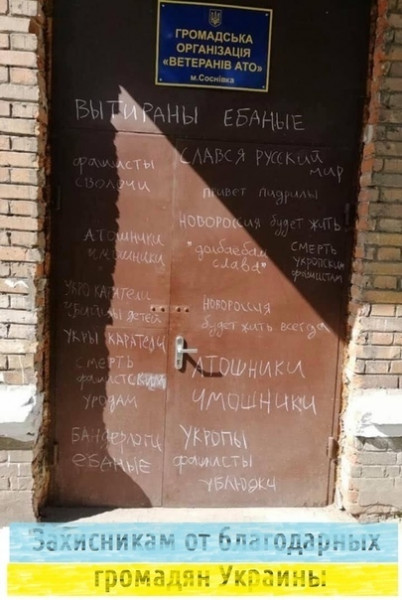 ГРОМАДСЬКА
ОРГАНІЗАЦІЯ
«ВЕТЕРАНІВ АТО»
м.Соснівка
ВЫТИРАНЫ ЕБАНЫЕ
фашисты
сволочи
СЛАВСЯ РУССКИЙ
МИР
привет пидрилы
НОВОРОССИЯ будет жить
АТОШНИКИ
ЧМОШНИКИ
"долбаебам
слава"
СМЕРТЬ
укропским
фашистам
УКРО КАРАТЕЛИ
убийцы детей
НОВОРОССИЯ
будет жить всегда
УКРЫ КАРАТЕЛИ
СМЕРТЬ
фашистским
уродам
АТОШНИКИ
ЧМОШНИКИ
БАНДЕРЛОГИ
ебаные
УКРОПЫ
фашисты
УБЛЮДКИ
Захисникам от благодарных
громадян Украины